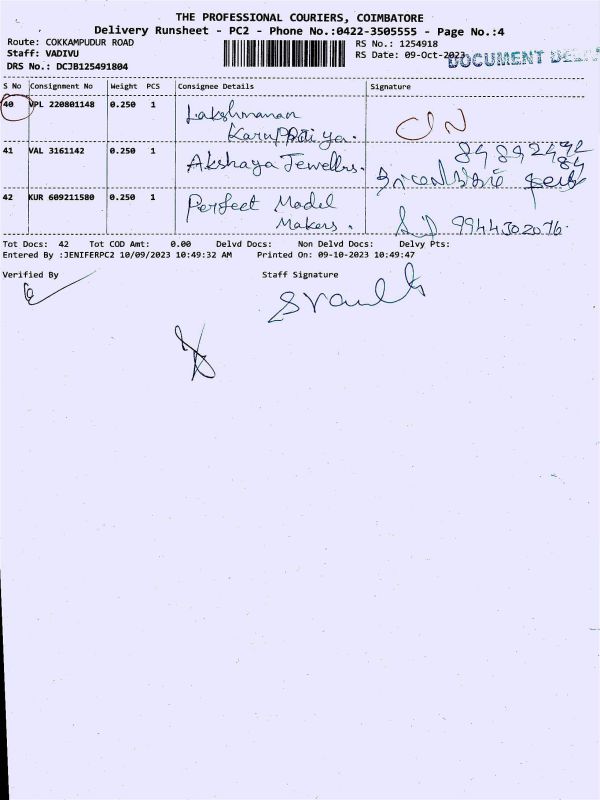 THE PROFESSIONAL COURIERS, COIMBATORE
Delivery Runsheet - PC2 - Phone No.:0422-3505555 - Page No.:4
Route: COKKAMPUDUR ROAD
RS No.: 1254918
Staff: VADIVU
RS Date: 09-Oct-2023
DOCUMENT
DRS No.: DCJB125491804
S No Consignment No Weight PCS Consignee Details Signature
40 VPL 220801148 0.250 1 Lakshmanan
Karuppatiya.
41 VAL 3161142 0.250 1 Akshaya Jewellrs.
42 KUR 609211580 0.250 1 Perfect Model
Makers.
9944302076
Tot Docs: 42 Tot COD Amt: 0.00 Delvd Docs: Non Delvd Docs: Delvy Pts:
Entered By :JENIFERPC2 10/09/2023 10:49:32 AM Printed On: 09-10-2023 10:49:47
Verified By Staff Signature